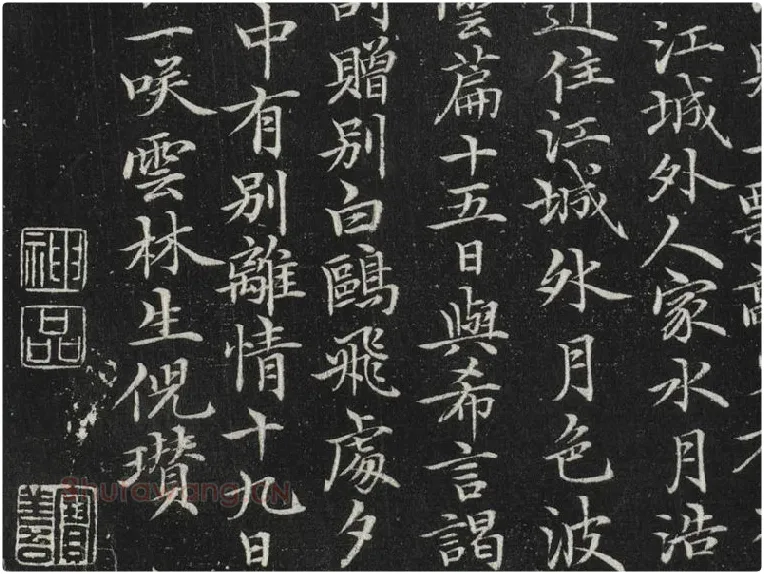 江城外人家水月浩
住江城外月色波
雲篇十五日與希言謁
贈别白鷗飛處夕
中有别離情十九日
一咲雲林生倪瓚
神
品
Shufawang.CN